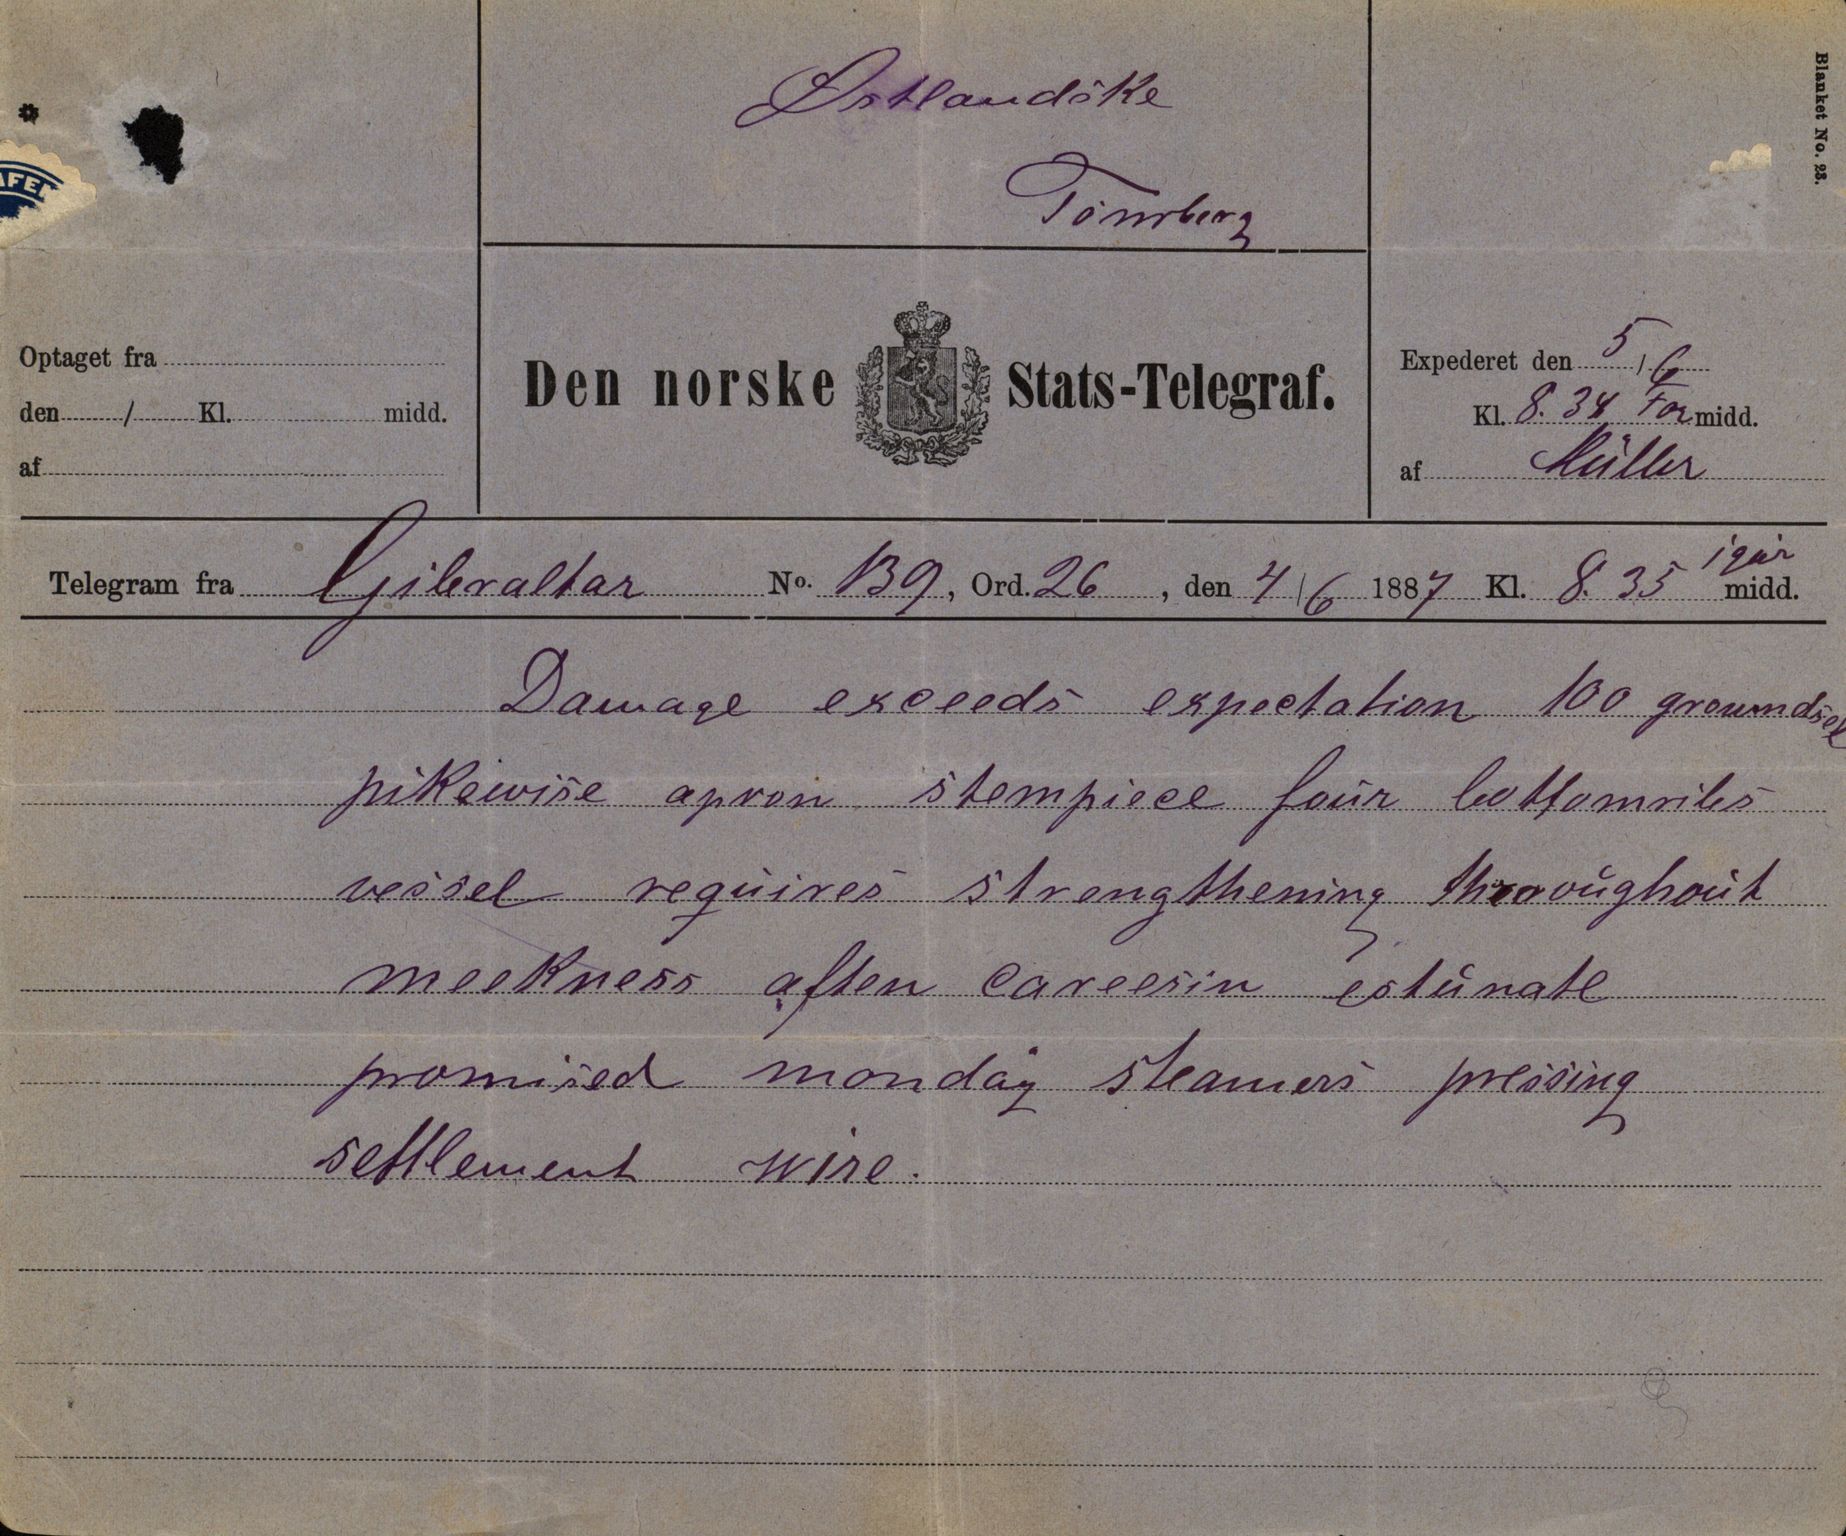 Blanket No. 23.
Østlandske
Tönsberg
Optaget fra
den / Kl. midd.
af
Den norske Stats-Telegraf.
Expederet den 5/6
Kl. 8.34 For midd.
af Müller
Telegram fra Gibraltar No. 139, Ord. 26, den 4/6 1887 Kl. 8.35 igår midd.
Damage exceeds expectation 100 groundsel
pikewise apron stempiece four bottomribs
vessel requires strengthening throughout
meekness often careesin estimate
promised monday steamers pressing
settlement wire.